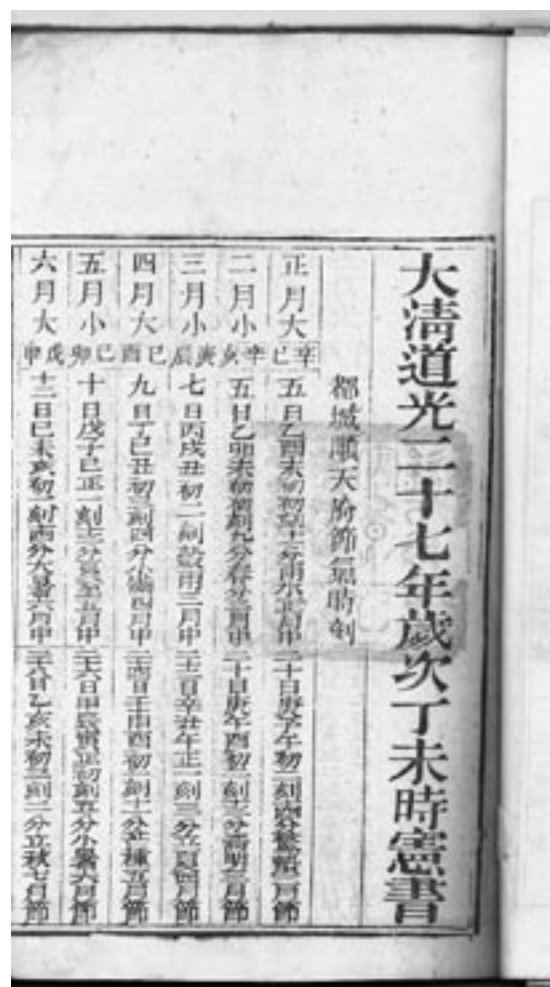 大清道光二十七年歲次丁未時憲書
都城順天府節氣時刻
正月大 辛巳 五日乙酉未初初刻十二分雨水正月中 二十日庚子午初一刻四分驚蟄二月節
二月小 辛亥 五日乙卯未初初刻九分春分二月中 二十日庚午酉初二刻十三分清明三月節
三月小 庚辰 七日丙戌丑初二刻穀雨三月中 二十二日辛丑午正一刻三分立夏四月節
四月大 己酉 九日丁巳丑初三刻四分小滿四月中 二十四日壬申酉初一刻十一分芒種五月節
五月小 己卯 十日戊子巳正一刻十三分夏至五月中 二十六日甲辰寅正初刻五分小暑六月節
六月大 戊申 十二日己未亥初一刻四分大暑六月中 二十八日乙亥未初三刻二分立秋七月節